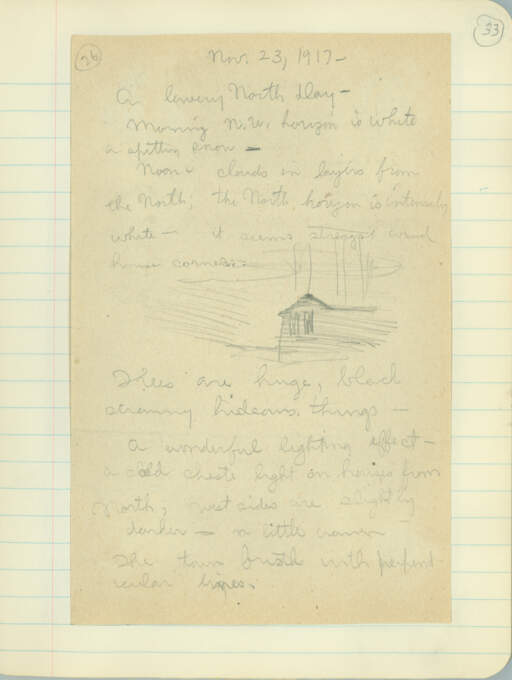 33
26
Nov. 23, 1917 –
A lowery North Day –
Morning N.W. horizon is white
a spitting snow –
Noon clouds in layers from
the North; the North horizon is intensely
white – it seems strange wind
house corners.
Trees are huge, black
scrawny hideous things –
A wonderful lighting effect –
a cold light on houses from
North; west sides are slightly
darker – a little
The town with perpendi-
cular lines.